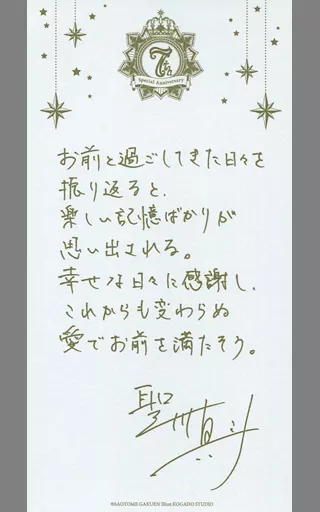 7th
Special Anniversary
お前と過ごしてきた日々を
振り返ると、
楽しい記憶ばかりが
思い出される。
幸せな日々に感謝し、
これからも変わらぬ
愛でお前を満たそう。
聖川真斗
©SAOTOME GAKUEN Illust.KOGADO STUDIO